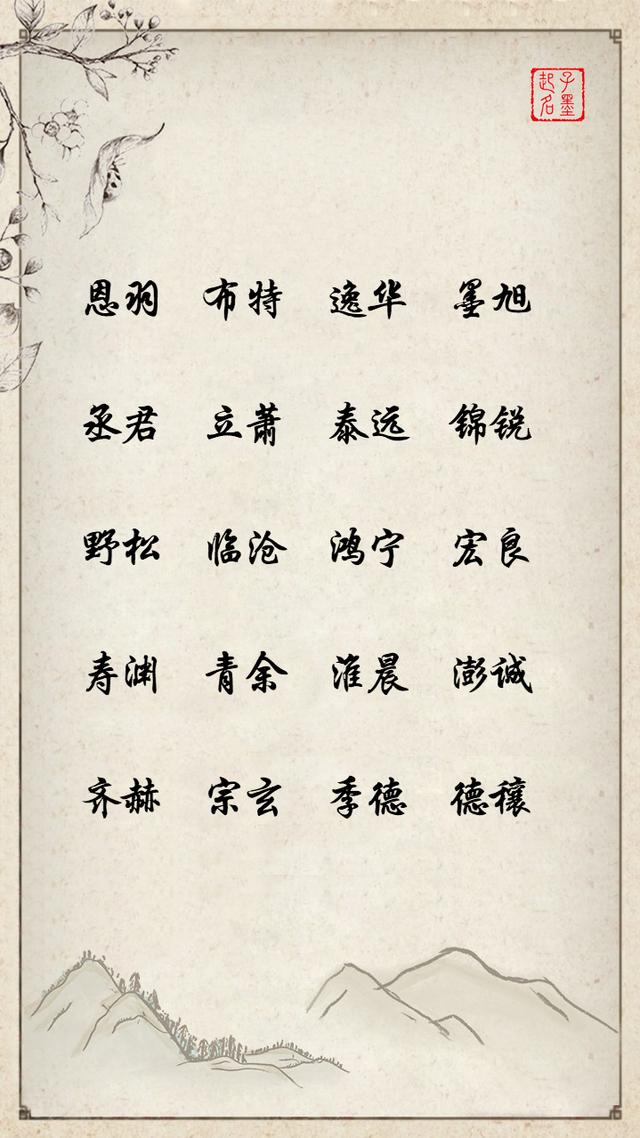 子墨
起名
恩羽 布特 逸华 墨旭
丞君 立萧 泰远 锦锐
野松 临沧 鸿宁 宏良
寿渊 青余 淮晨 澎诚
齐赫 宗玄 季德 德穰